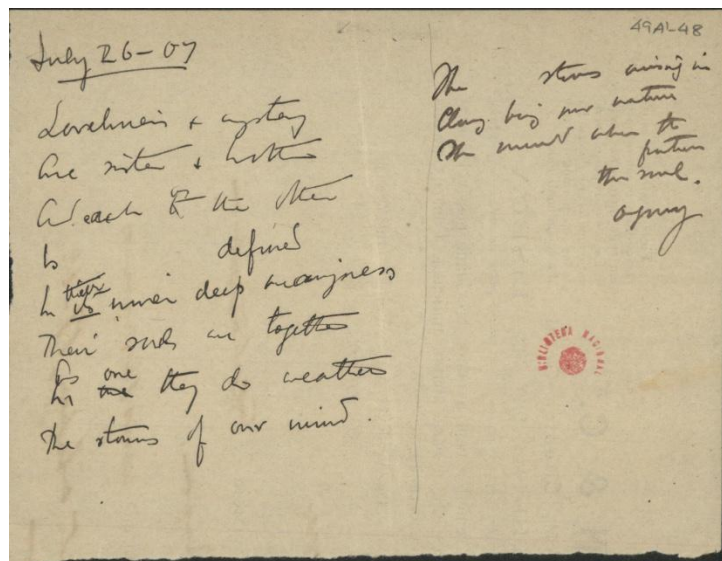 July 26-07
Loveliness & mystery
Are sister & brother
And each to the other
Is defined
In their its inner deep meaningness
Their souls are together
As In one they do weather
The storms of our mind.
49A1-48
The storms arising in
being our nature
The mind when the
the soul.
agony
BIBLIOTECA NACIONAL